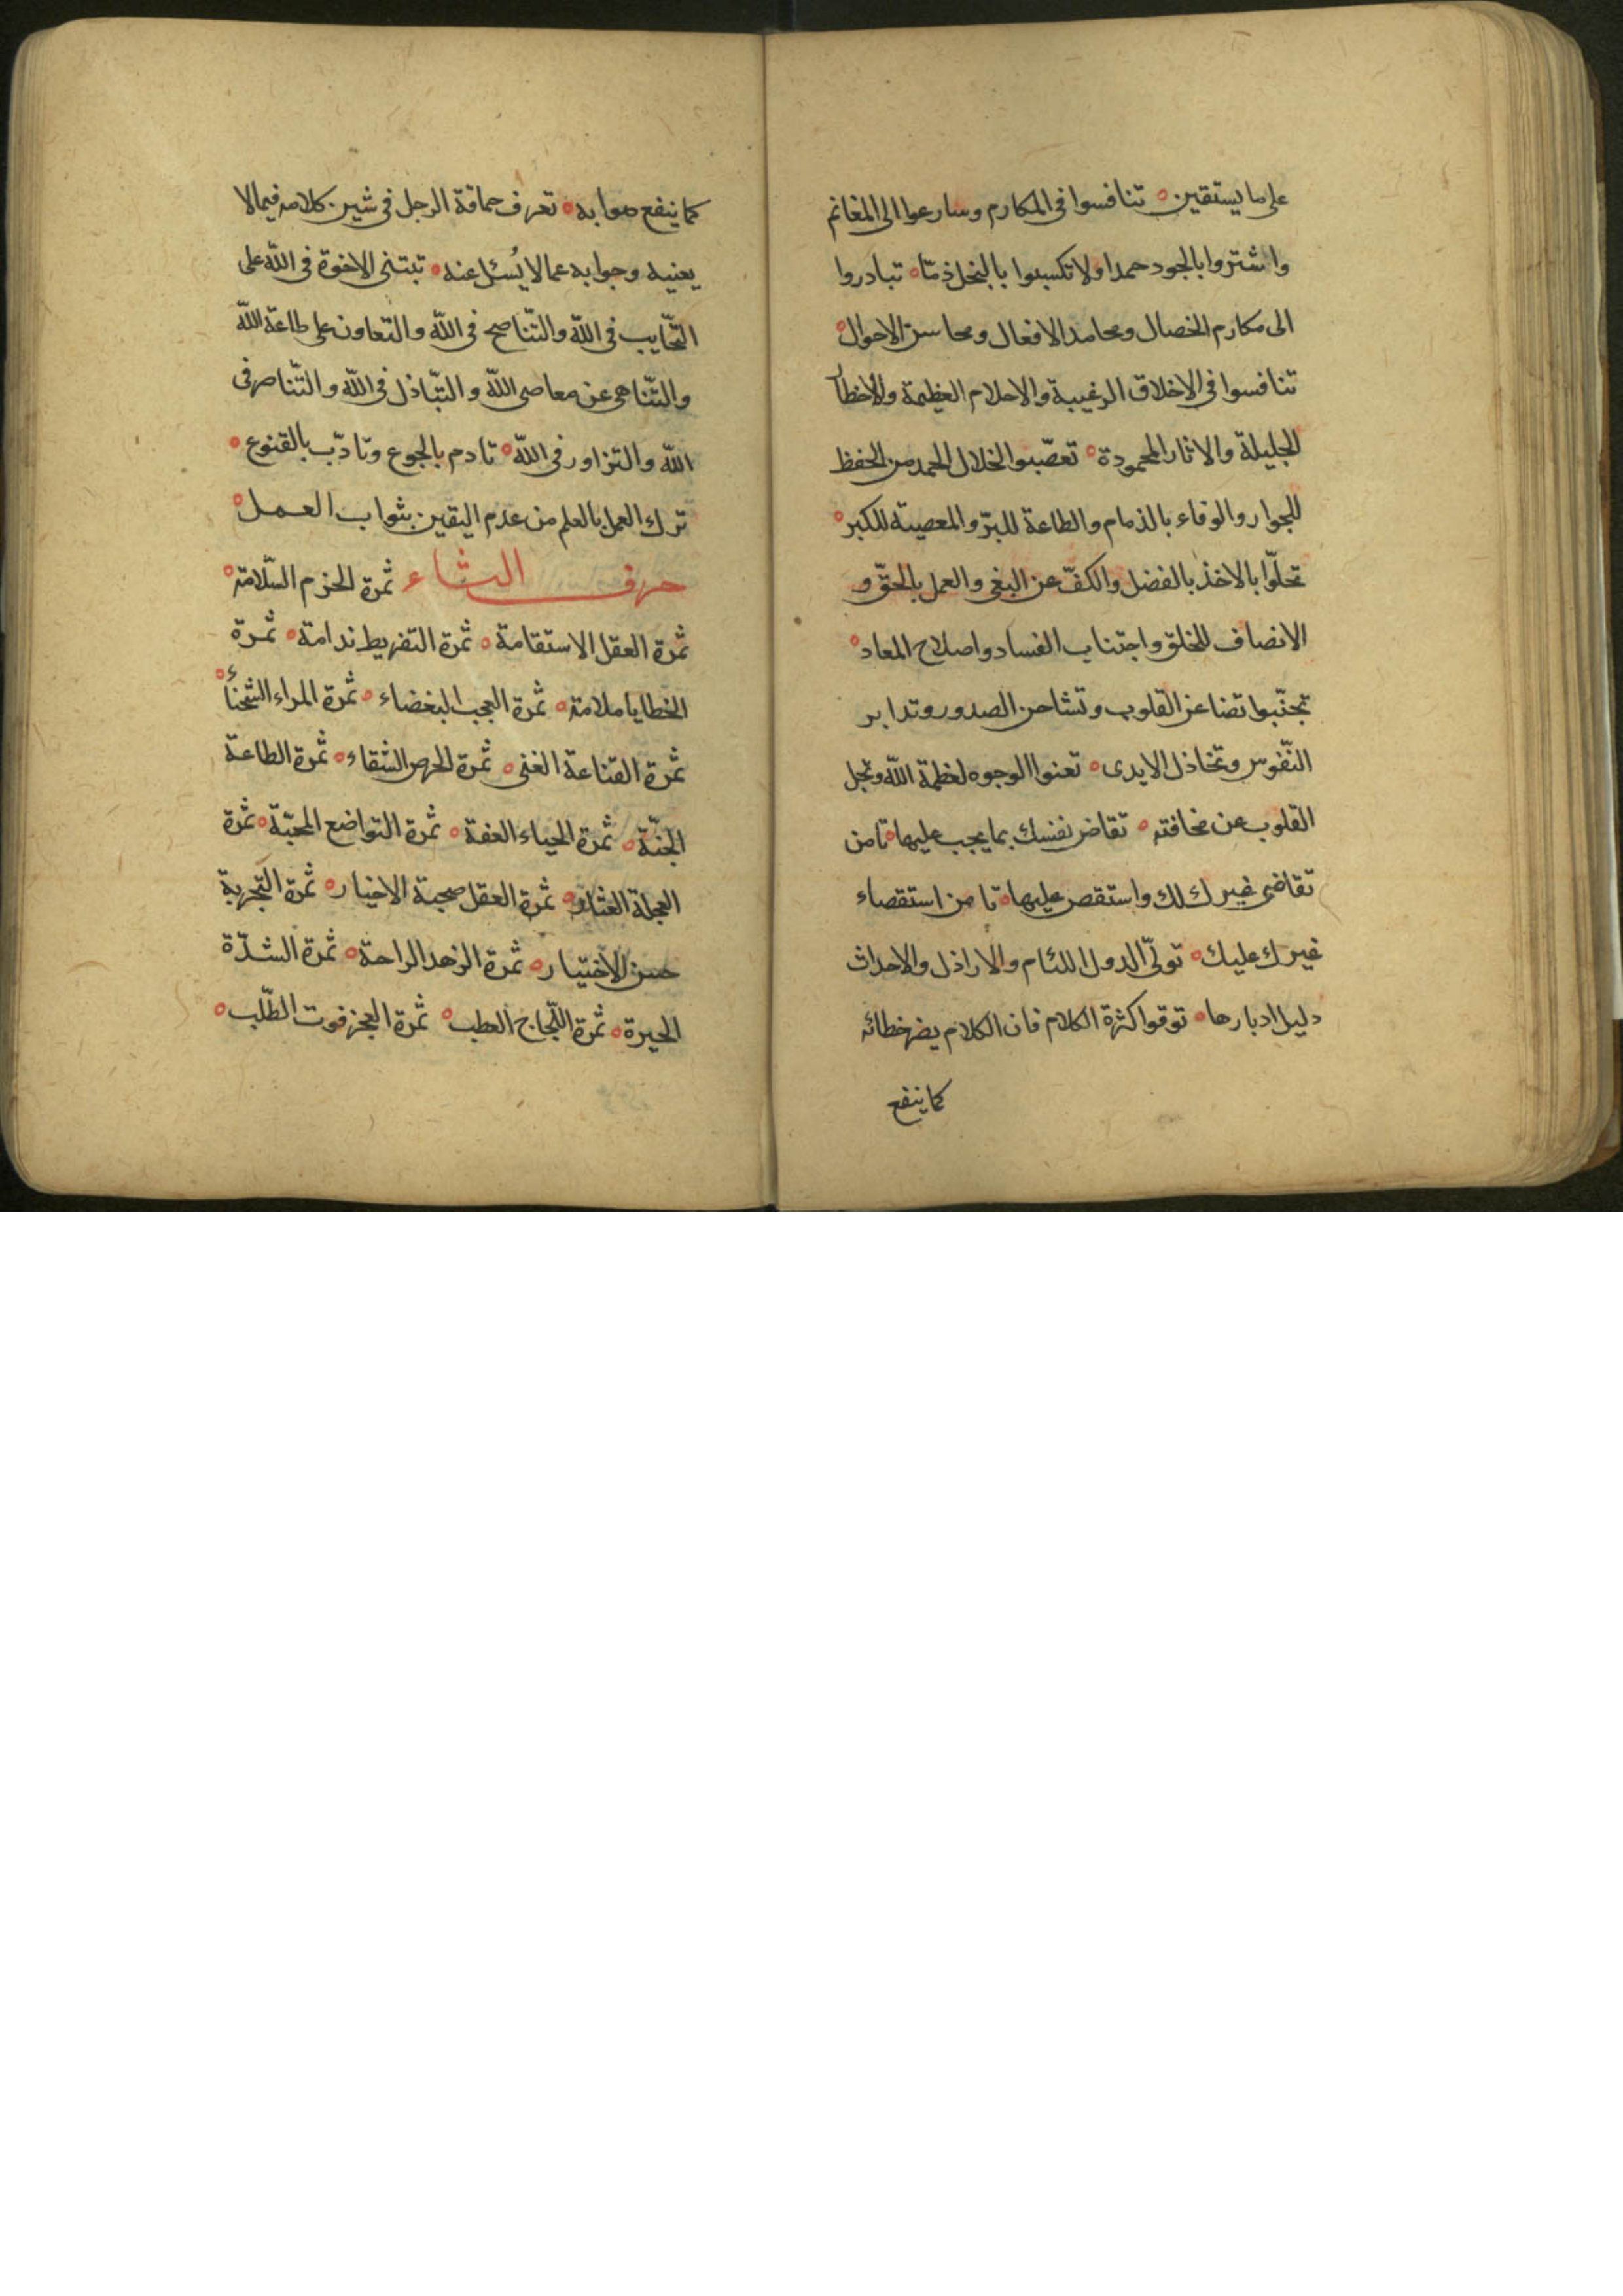 على ما يستقين ه تنافسوا فى المكارم وسارعوا الى المغانم
واشتروا بالجود حمدا ولا تكسبوا بالبخل ذمّا ه تبادروا
الى مكارم الخصال ومحامد الافعال ومحاسن الاحوال ه
تنافسوا فى الاخلاق الرغيبة والاحلام العظيمة والاخطار
الجليلة والاثار المحمودة ه تعصّبوا لخلال الحمد من الحفظ
للجوار والوفاء بالذمام والطاعة للبرّ والمعصية للكبر ه
تحلّوا بالاخذ بالفضل والكفّ عن البغى والعمل بالحقّ و
الانصاف للخلق واجتناب الفساد واصلاح المعاد ه
تجنّبوا تضاغن القلوب وتشاحن الصدور وتدابر
النّفوس وتخاذل الايدى ه تعنوا الوجوه لعظمة الله وتجل
القلوب من مخافته ه تقاض نفسك بما يجب عليها ه تامن
تقاضى غيرك لك واستقص عليها ه تامن استقصاء
غيرك عليك ه تولّى الدول اللئام والاراذل والاحداث
دليل ادبارها ه توقوا كثرة الكلام فان الكلام يضر خطائه
كما ينفع
كما ينفع صوابه ه تعرف حماقة الرجل فى شين كلامه فيما لا
يعنيه وجوابه عما لا يُسئل عنه ه تبتنى الاخوة فى الله على
التّحابب فى الله والتّناصح فى الله والتّعاون على طاعة الله
والتّناهى عن معاصى الله والتّباذل فى الله والتّناصر فى
الله والتزاور فى الله ه تادم بالجوع وتادّب بالقنوع ه
ترك العمل بالعلم من عدم اليقين بثواب العمل ه
حرف الثاء ثمرة الحزم السّلامة ه
ثمرة العقل الاستقامة ه ثمرة التفريط ندامة ه ثمرة
الخطايا ملامة ه ثمرة العجب البغضاء ه ثمرة المراء الشحناء ه
ثمرة القناعة الغنى ه ثمرة الحرص الشقاء ه ثمرة الطاعة
الجنّة ه ثمرة الحياء العفة ه ثمرة التواضع المحبّة ه ثمرة
العجلة العثار ه ثمرة العقل صحبة الاخيار ه ثمرة التّجربة
حسن الاختيار ه ثمرة الزهد الراحة ه ثمرة الشدّة
الحيرة ه ثمرة اللّجاج العطب ه ثمرة العجز فوت الطّلب ه